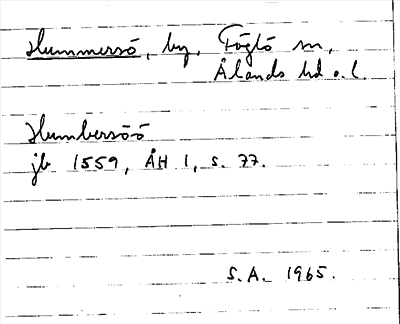 Hummersö, by, Föglö sn,
Ålands hd o. l.
Humbersöö
jb 1559, ÅH 1, s. 77.
S.A. 1965.